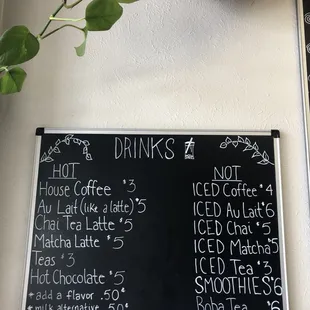 DRINKS
HOT
House Coffee $3
Au Lait (like a latte) $5
Chai Tea Latte $5
Matcha Latte $5
Teas $3
Hot Chocolate $5
*add a flavor .50¢
*milk alternative .50¢
NOT
ICED Coffee $4
ICED Au Lait $6
ICED Chai $5
ICED Matcha $5
ICED Tea $3
SMOOTHIES $6
Boba Tea $6